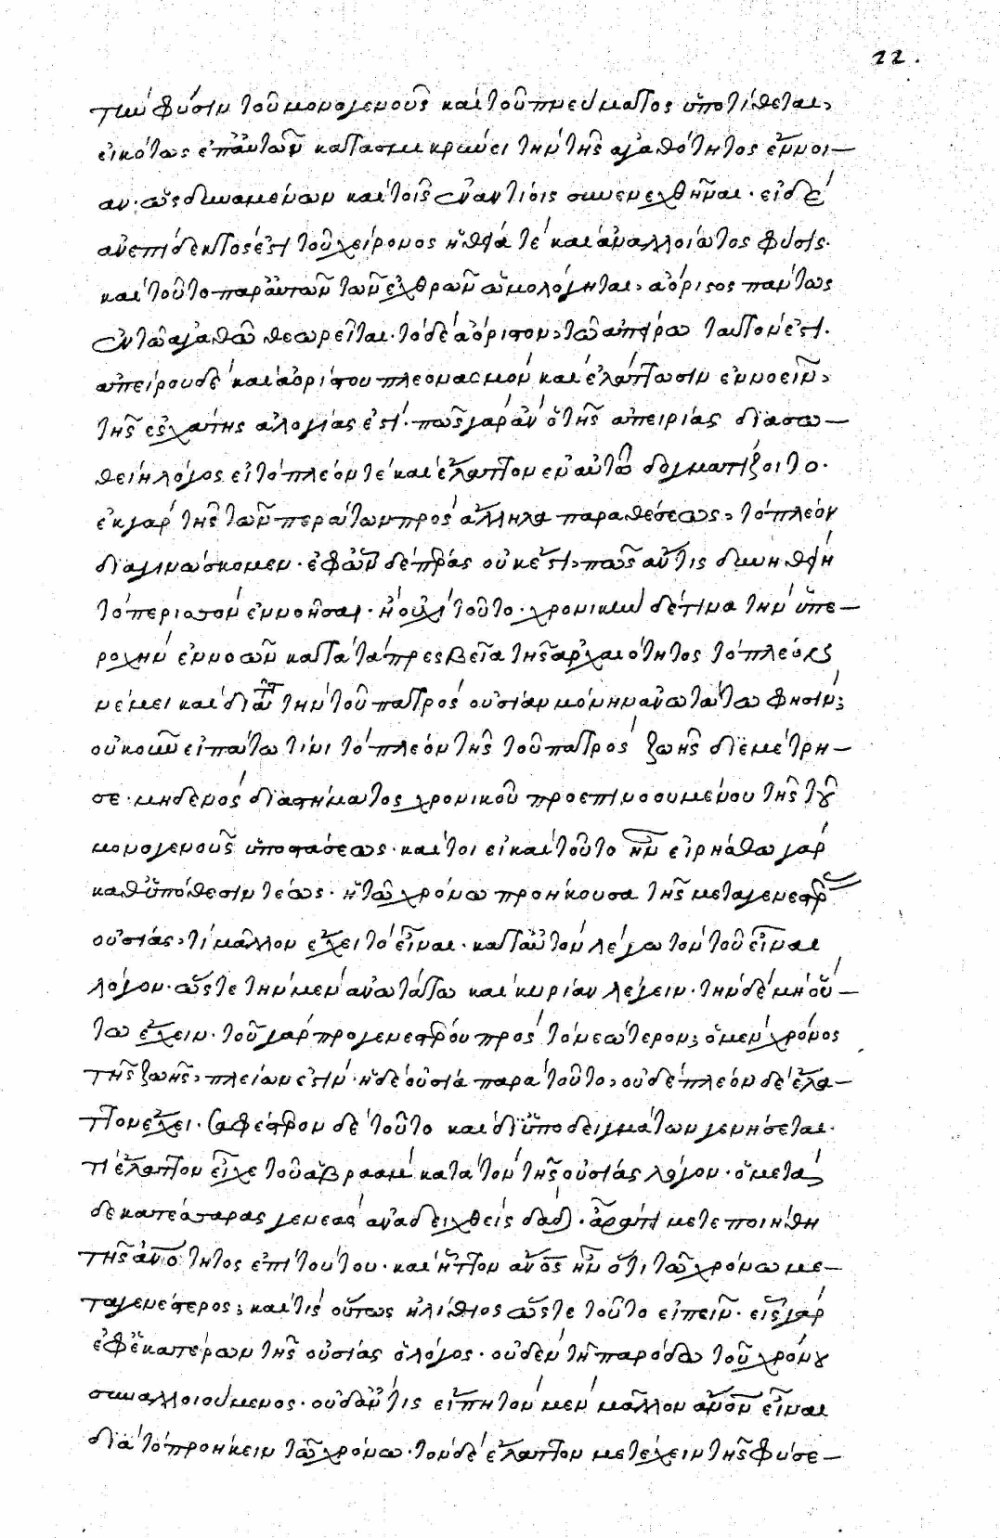 22.
τὴν φύσιν τοῦ μονογενοῦς καὶ τοῦ πνεύματος ὑποτίθεται,
εἰκότως ἐπ' αὐτῶν κατασμικρύνει τὴν τῆς ἀγαθότητος ἔννοι-
αν· ὡς δυναμένων καὶ τοῖς ἐναντίοις συνενεχθῆναι· εἰ δὲ
ἀνεπίδεκτός ἐστι τοῦ χείρονος ἡ θεία τὲ καὶ ἀναλλοίωτος φύσις·
καὶ τοῦτο παρ' αὐτῶν τῶν ἐχθρῶν ὡμολόγηται, ἀόριστος πάντως
ἐν τῶ ἀγαθῶ θεωρεῖται· τὸ δὲ ἀόριστον, τῶ ἀπείρω ταυτόν ἐστι·
ἀπείρου δὲ καὶ ἀορίστου πλεονασμὸν καὶ ἐλάττωσιν ἐννοεῖν,
τῆς ἐσχάτης ἀλογίας ἐστί· πῶς γὰρ ἂν ὁ τῆς ἀπειρίας διασω-
θείη λόγος εἰ τὸ πλέον τὲ καὶ ἔλαττον ἐν αὐτῶ δογματίζοιτο·
ἐκ γὰρ τῆς τῶν περάτων πρὸς ἄλληλα παραθέσεως, τὸ πλέον
διαγινώσκομεν· ἐφ' ὧν δὲ πέρας οὐκ ἔστι, πῶς ἄν τις δυνηθείη
τὸ περισσὸν ἐννοῆσαι· ἢ οὐχὶ τοῦτο· χρονικὴν δέ τινα τὴν ὑπε-
ροχὴν ἐννοῶν κατὰ τὰ πρεσβεῖα τῆς ἀρχαιότητος τὸ πλέον
νέμει καὶ διὰ τοῦτο τὴν τοῦ πατρὸς οὐσίαν μόνην ἀνωτάτω φησίν;
οὐκοῦν εἰπάτω τίνι τὸ πλέον τῆς τοῦ πατρὸς ζωῆς διεμέτρη-
σε· μηδενὸς διαστήματος χρονικοῦ προεπινοουμένου τῆς τοῦ
μονογενοῦς ὑποστάσεως· καίτοι εἰ καὶ τοῦτο ἦν εἰρήσθω γὰρ
καθ' ὑπόθεσιν τέως· ἡ τῶ χρόνω προήκουσα τῆς μεταγενεστέρας
οὐσίας, τί μᾶλλον ἔχει τὸ εἶναι· κατ' αὐτὸν λέγω τὸν τοῦ εἶναι
λόγον· ὥστε τὴν μὲν ἀνωτάτω καὶ κυρίαν λέγειν· τὴν δὲ μὴ οὕ-
τω ἔχειν· τοῦ γὰρ προγενεστέρου πρὸς τὸ νεώτερον; ὁ μὲν χρόνος
τῆς ζωῆς, πλείων ἐστίν· ἡ δὲ οὐσία παρὰ τοῦτο, οὐδὲ πλέον δὲ ἔλα-
ττον ἔχει· σαφέστερον δὲ τοῦτο καὶ δι' ὑποδειγμάτων γενήσεται·
τί ἔλαττον εἶχε τοῦ ἀβραὰμ κατὰ τὸν τῆς οὐσίας λόγον· ὁ μετὰ
δεκατέσσαρας γενεὰς ἀναδειχθεὶς δαδ· ἆρά τι μετεποιήθη
τῆς ἀνότητος ἐπὶ τούτου· καὶ ἧττον ἄνος ἦν ὅτι τῶ χρόνω με-
ταγενέστερος; καὶ τίς οὕτως ἠλίθιος ὥστε τοῦτο εἰπεῖν· εἷς γὰρ
ἐφ' ἑκατέρων τῆς οὐσίας ὁ λόγος· οὐδὲν τῆ παρόδω τοῦ χρόνου
συναλλοιούμενος· οὐδ' ἄν τις εἴπη τὸν μὲν μᾶλλον ἄνον εἶναι
διὰ τὸ προήκειν τῶ χρόνω· τὸν δὲ ἔλαττον μετέχειν τῆς φύσε-